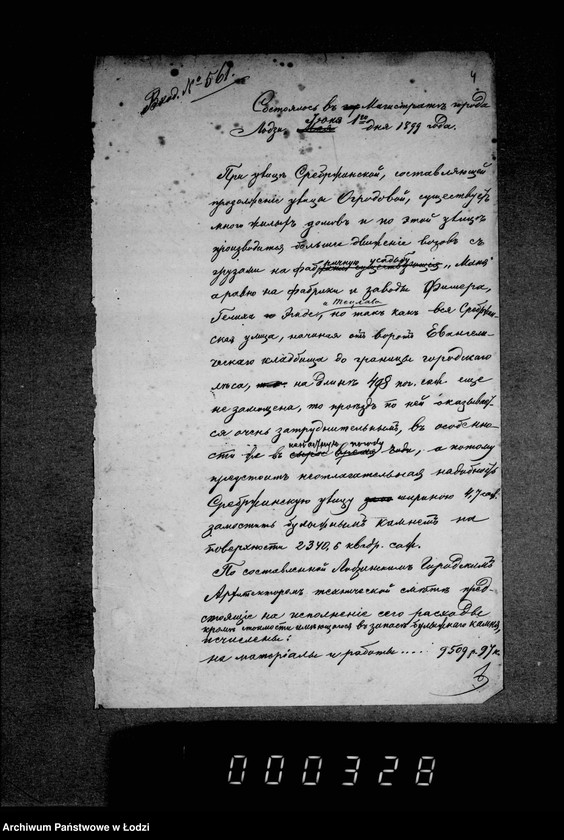 Вход. № 561.
4
Состоялось въ Магистратѣ города
Лодзи Іюня 1го дня 1899 года.
При улицѣ Сребржинской, составляющей
продолженіе улицы Огродовой, существуетъ
много жилыхъ домовъ и по этой улицѣ
производится большое движеніе возовъ съ
грузами на фабричную усадьбу „Маня"
а равно на фабрики и заводы
но такъ какъ вся Сребржин-
ская улица, начиная отъ воротъ Евангели-
ческаго кладбища до границы городскаго
лѣса, на длинѣ 498 пог. саж. еще
не замощена, то проѣздъ по ней оказывает-
ся очень затруднительный, въ особенно-
сти въ ненастную погоду года, а потому
предстоитъ неотлагательная надобность
Сребржинскую улицу шириною 4,7 саж.
замостить булыжнымъ камнемъ на
поверхности 2340,6 квадр. саж.
По составленной Лодзинскимъ Городскимъ
Архитекторомъ технической смѣтѣ пред-
стоящіе на исполненіе сего расходы
кромѣ стоимости имѣющагося въ запасѣ булыжнаго камня,
исчислены:
на матеріалы и работы .... 9509 р. 97 к.
000328
Archiwum Państwowe w Łodzi